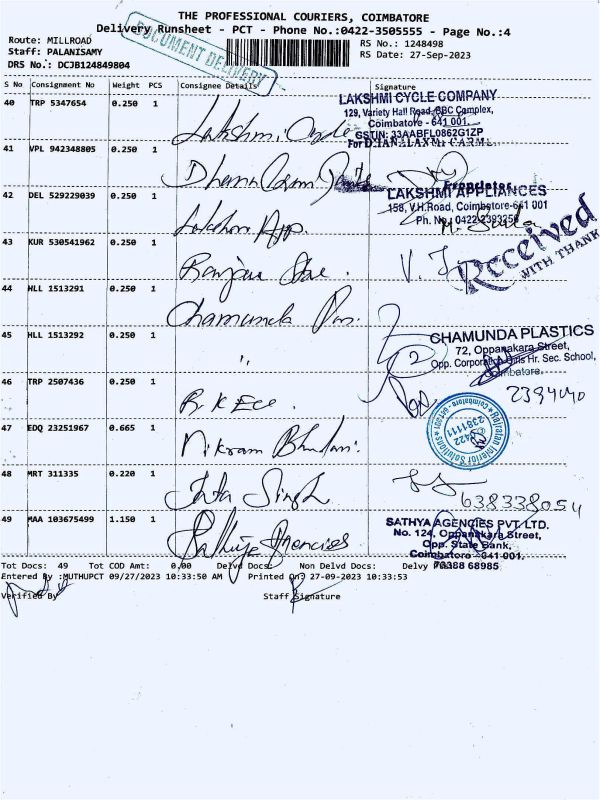 THE PROFESSIONAL COURIERS, COIMBATORE
Delivery Runsheet - PCT - Phone No.:0422-3505555 - Page No.:4
DOCUMENT DELIVERY
Route: MILLROAD
Staff: PALANISAMY
DRS No.: DCJB124849804
RS No.: 1248498
RS Date: 27-Sep-2023
S No Consignment No Weight PCS Consignee Details Signature
40 TRP 5347654 0.250 1 Lakshmi Cycle
LAKSHMI CYCLE COMPANY
129, Variety Hall Road, CBC Complex,
Coimbatore - 641 001.
GSTIN: 33AABFL0862G1ZP
41 VPL 942348805 0.250 1
For DHANALAXMI CARML
Proprietor
42 DEL 529229039 0.250 1 Lakshmi App.
LAKSHMI APPLIANCES
158, V.H.Road, Coimbatore-641 001
Ph. No. 0422-2393256
Received
WITH THANK
43 KUR 530541962 0.250 1
44 HLL 1513291 0.250 1 Chamunda
45 HLL 1513292 0.250 1 "
CHAMUNDA PLASTICS
72, Oppanakara Street,
Opp. Corporation Girls Hr. Sec. School,
Coimbatore.
46 TRP 2507436 0.250 1 R.K Ece.
2394040
47 EDQ 23251967 0.665 1
Rajratan Interior Solutions
Coimbatore - 641 001
0422
2381111
48 MRT 311335 0.220 1 Singh
638338054
49 MAA 103675499 1.150 1 Sathya Agencies
SATHYA AGENCIES PVT. LTD.
No. 124, Oppanakara Street,
Opp. State Bank,
Coimbatore - 641 001.
70388 68985
Tot Docs: 49 Tot COD Amt: 0.00 Delvd Docs: Non Delvd Docs: Delvy
Entered By :MUTHUPCT 09/27/2023 10:33:50 AM Printed On? 27-09-2023 10:33:53
Verified By Staff Signature